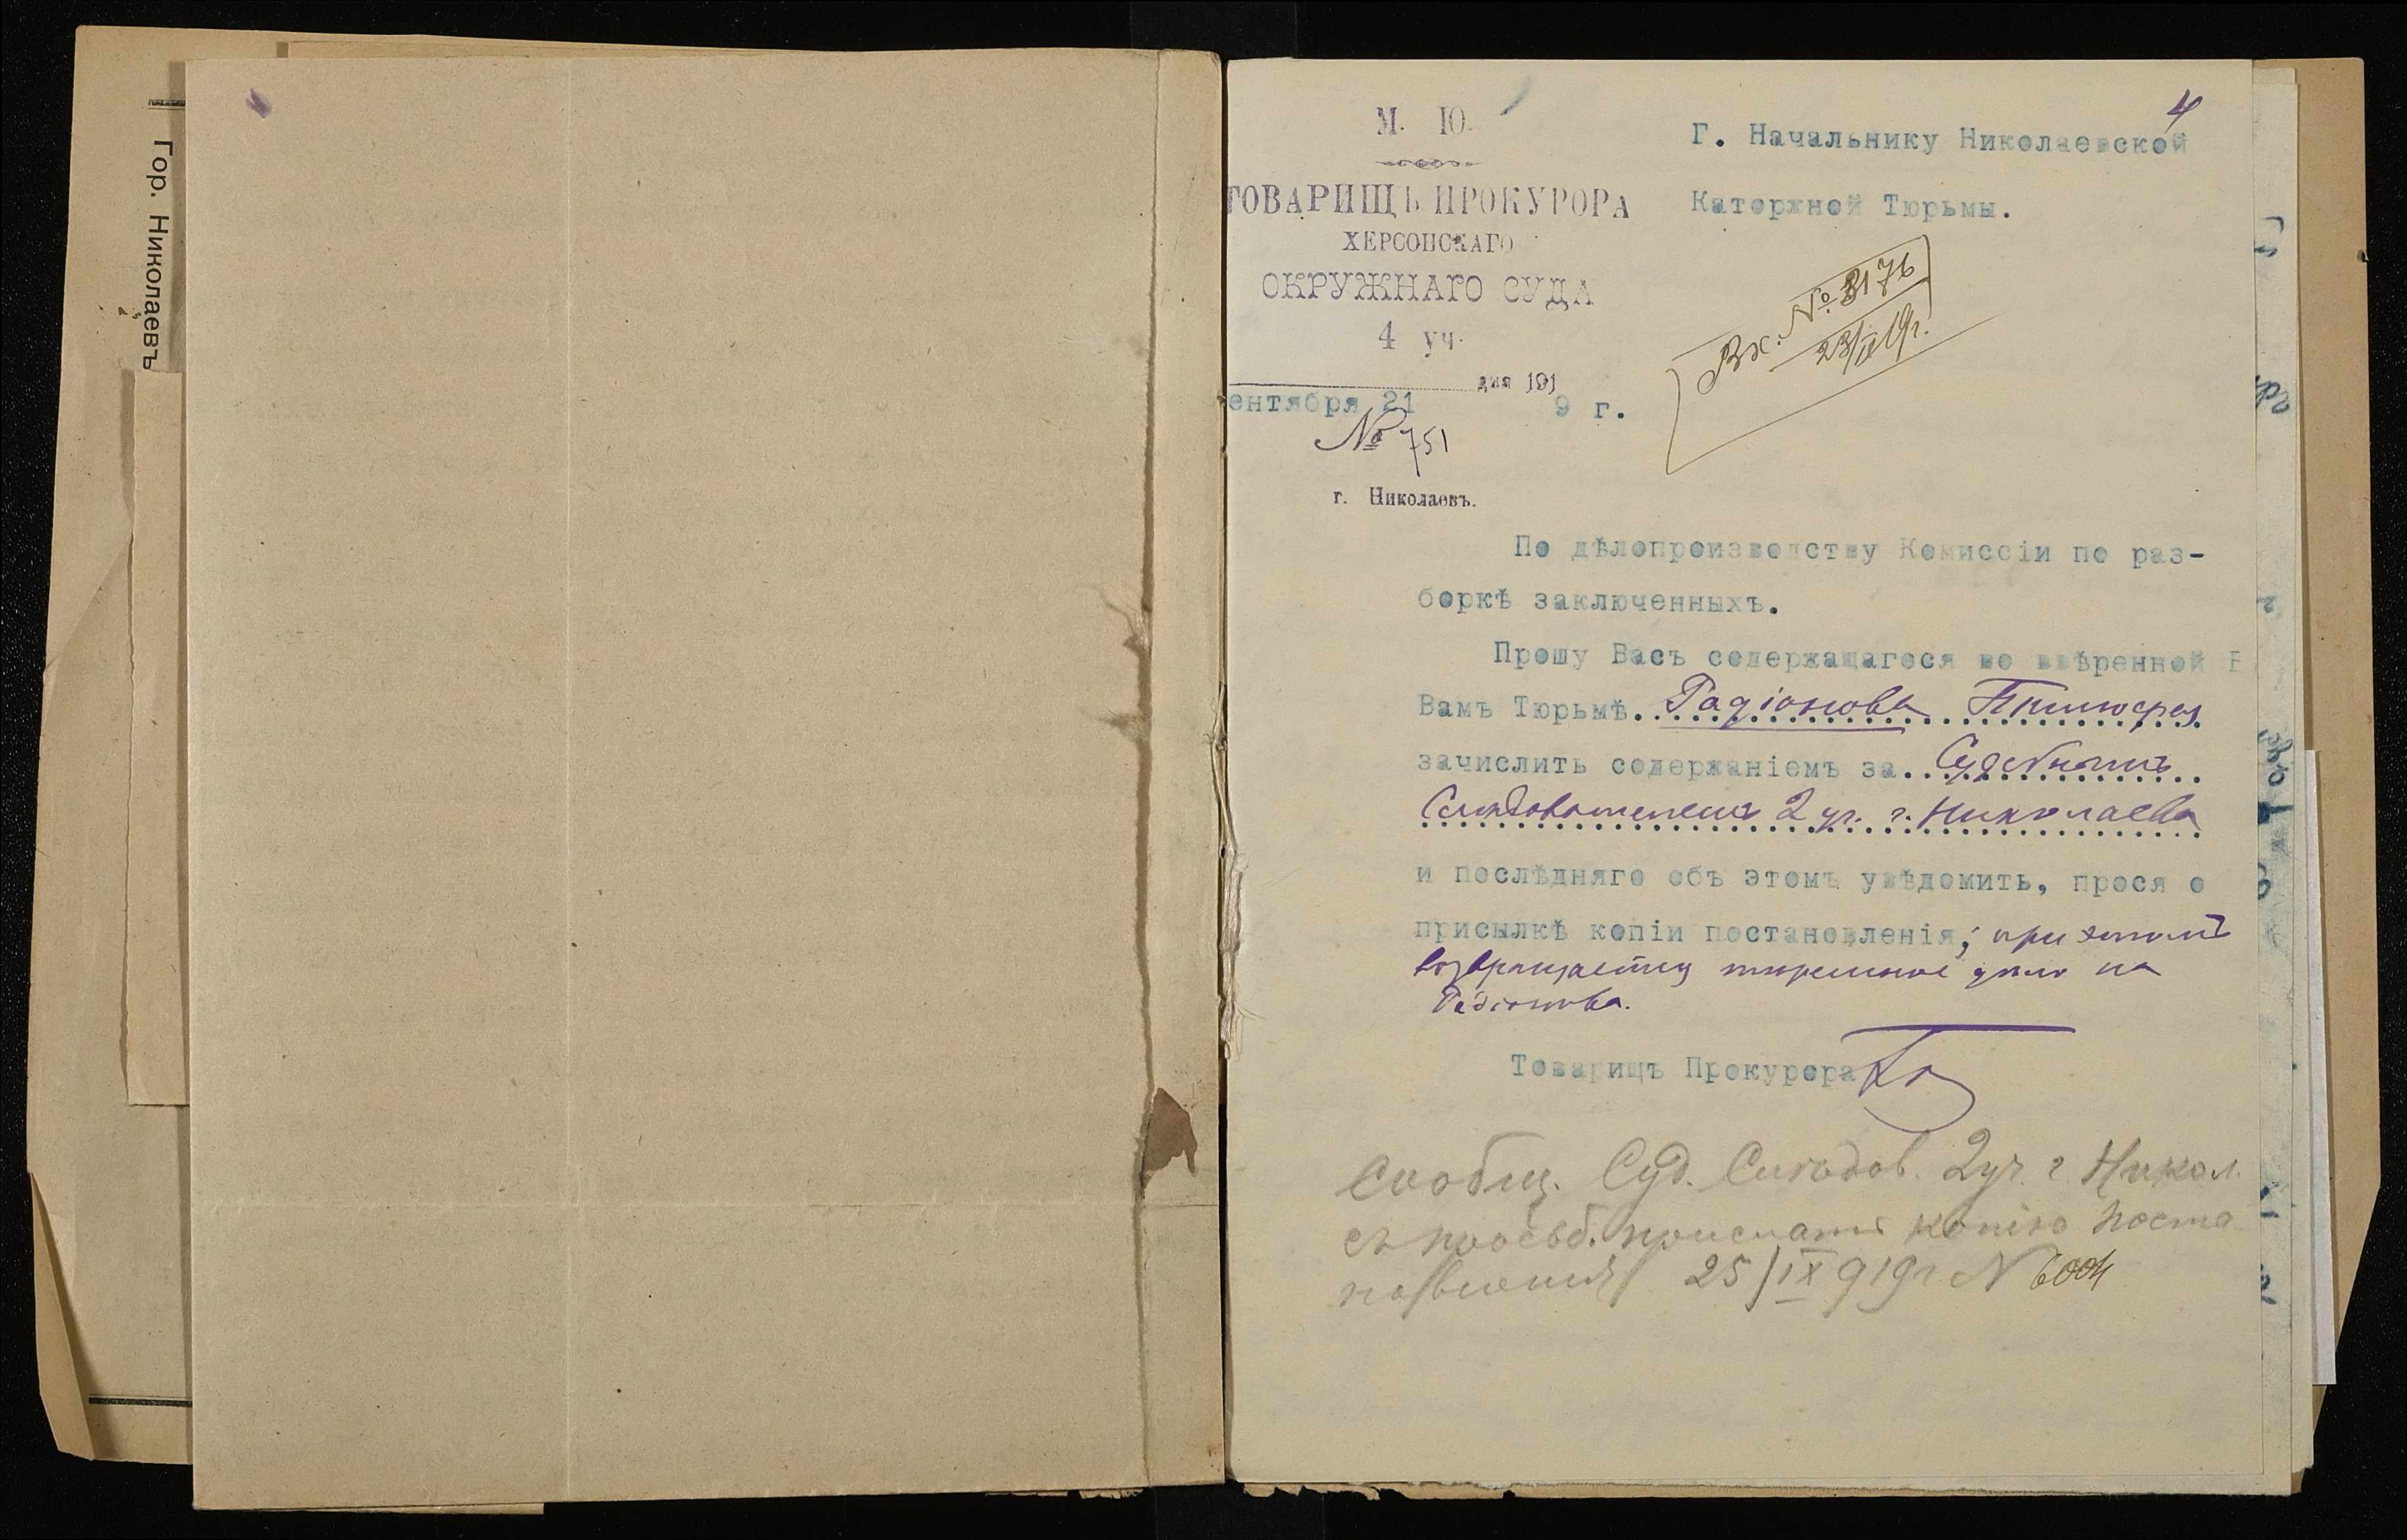 Гор. Николаевъ
4
М. Ю.
ТОВАРИЩЪ ПРОКУРОРА
ХЕРСОНСКАГО
ОКРУЖНАГО СУДА
4 уч.
дня 191
ентября 21 9 г.
№ 751
г. Николаевъ.
Г. Начальнику Николаевской
Каторжной Тюрьмы.
Вх. № 3176
23/IX 19г.
По дѣлопроизводству Комиссіи по раз-
боркѣ заключенныхъ.
Прошу Васъ содержащагося во ввѣренной В
Вамъ Тюрьмѣ. Радіонова
зачислить содержаніемъ за Судебнымъ
Слѣдователемъ 2 уч. г. Николаева
и послѣдняго объ этомъ увѣдомить, прося о
присылкѣ копіи постановленія; при этомъ
возвращается тюремное дѣло на
Радіонова.
Товарищъ Прокурора
Сообщ. Суд. Слѣдов. 2 уч. г. Никол.
съ просьб. прислать копію поста
новленія 25/IX 919г N 6004